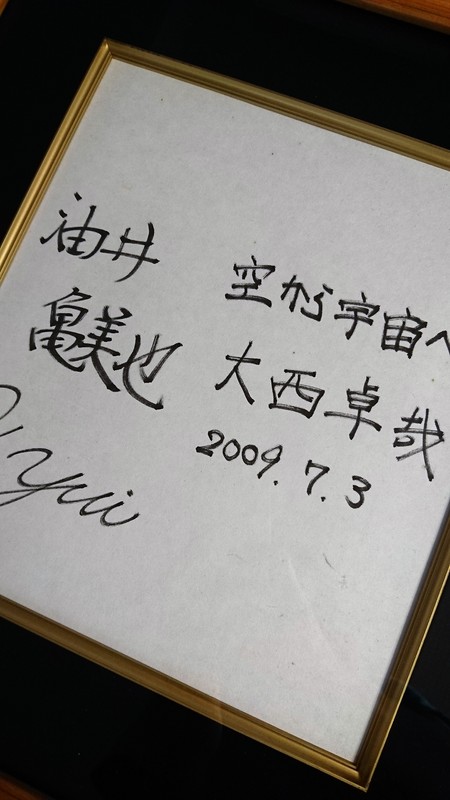 空から宇宙へ
大西卓哉
2009.7.3
油井
亀美也
Yui